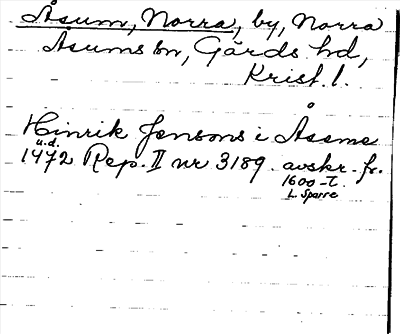 Åsum, Norra, by, Norra
Åsums sn, Gärds hd,
Krist. l.
Hinrik Jensons i Åsme
u.d.
1472 Rep. II nr 3189. avskr. fr.
1600-t.
L. Sparre